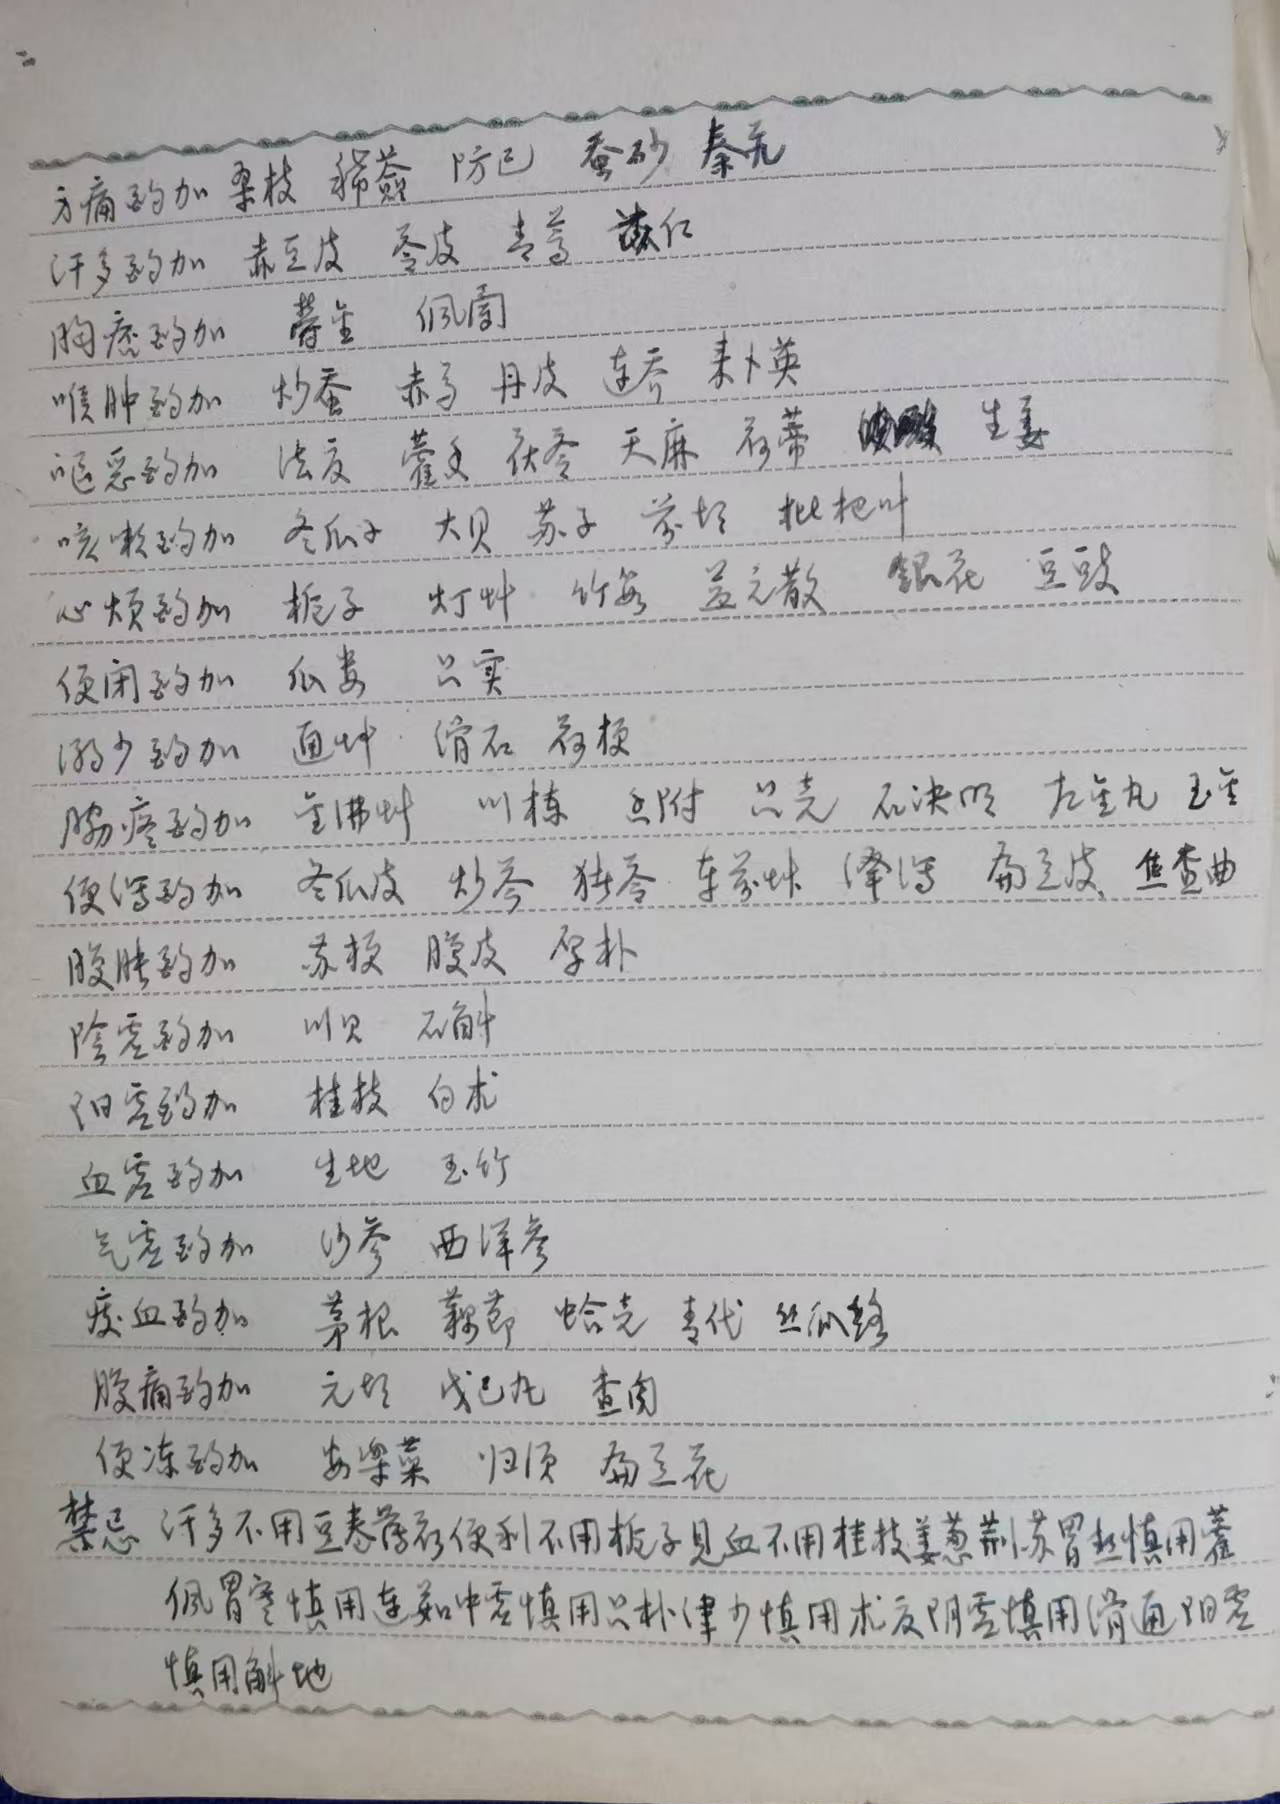 方痛酌加 桑枝 稀薟 防己 蚕砂 秦艽
汗多酌加 赤豆皮 苓皮 青蒿 苡仁
胸痞酌加 佩兰
喉肿酌加 炒蚕 赤芍 丹皮 连乔 来卜英
呕恶酌加 法夏 藿香 茯苓 天麻 荷蒂 生姜
咳嗽酌加 冬瓜子 大贝 苏子 前胡 枇杷叶
心烦酌加 栀子 灯艸 竹茹 益元散 銀花 豆豉
便闭酌加 瓜娄 只实
溺少酌加 通艸 滑石 荷梗
胁疼酌加 金沸艸 川楝 香附 只壳 石决明 左金丸 玉金
便泻酌加 冬瓜皮 炒苓 猪苓 车前艸 泽泻 扁豆皮 焦查曲
腹胀酌加 苏梗 腹皮 厚朴
陰虚酌加 川贝 石斛
阳虚酌加 桂枝 白术
血虚酌加 生地 玉竹
气虚酌加 沙参 西洋参
痰血酌加 茅根 藕节 蛤壳 青代 丝瓜络
腹痛酌加 元胡 戊己丸 查肉
便冻酌加 安乐菜 归须 扁豆花
禁忌 汗多不用豆卷薄荷便利不用栀子見血不用桂枝姜葱荆苏胃热慎用藿
佩胃寒慎用连茹中虚慎用只朴津少慎用术夏阴虚慎用滑通阳虚
慎用斛地